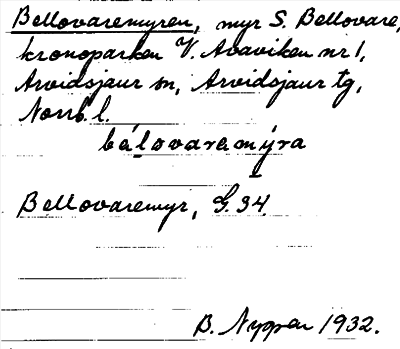 Bellovaremyren, myr S. Bellovare,
kronoparken V. Avaviken nr 1,
Arvidsjaur sn, Arvidsjaur tg,
Norrb. l.
bálovaremýra
Bellovaremyr, G. 34.
B. Nygren 1932.